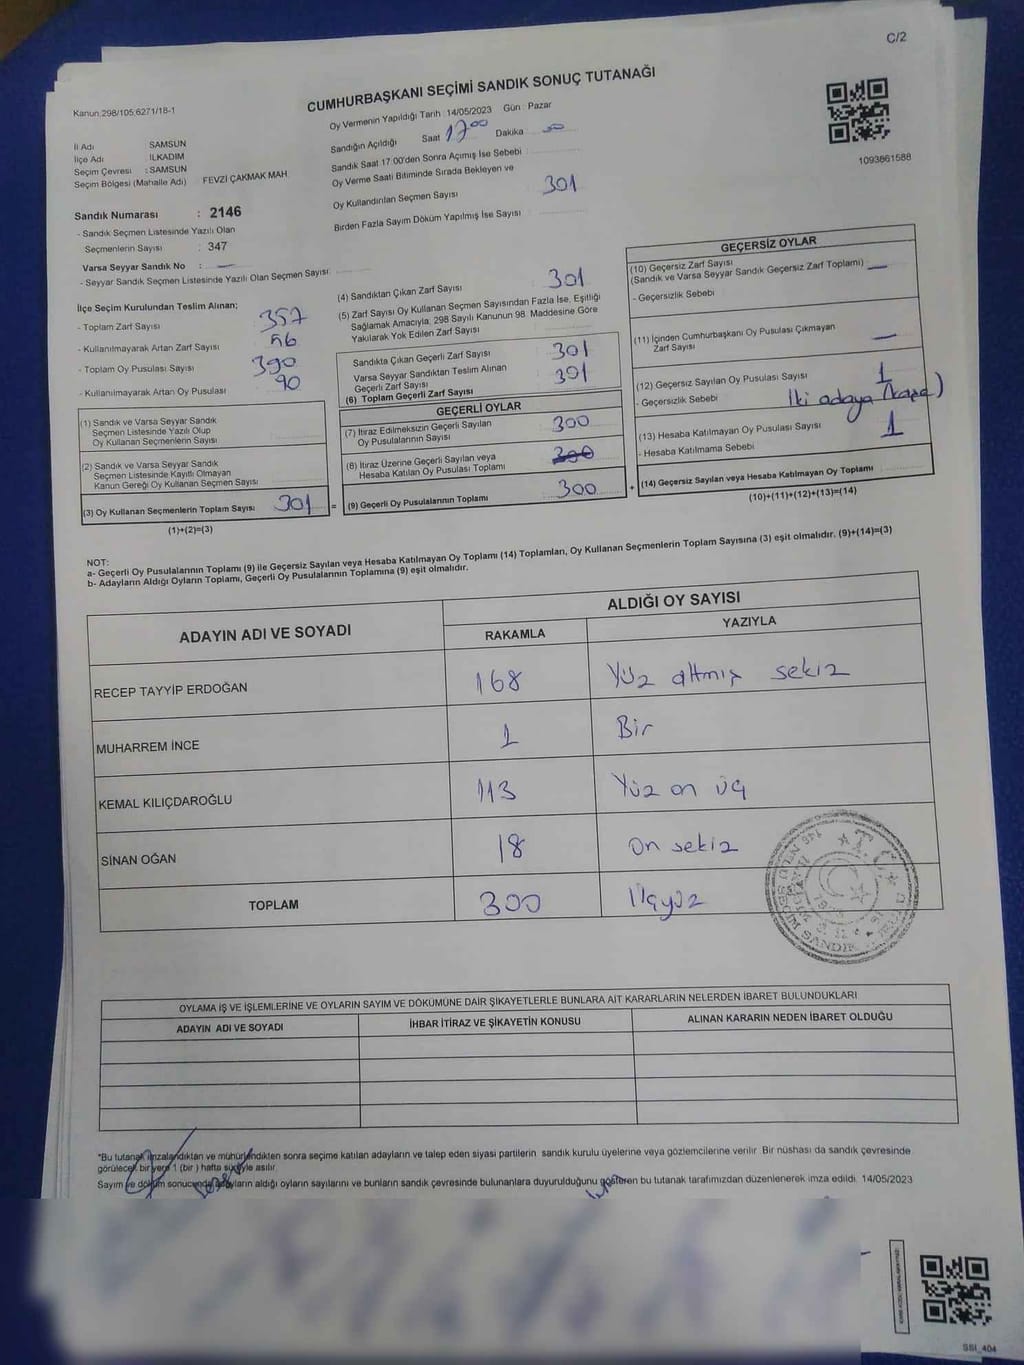 C/2
CUMHURBAŞKANI SEÇİMİ SANDIK SONUÇ TUTANAĞI
Kanun:298/105;6271/18-1
Oy Vermenin Yapıldığı Tarih : 14/05/2023 Gün : Pazar
Sandığın Açıldığı Saat 17 00 Dakika
Sandık Saat 17:00'den Sonra Açımış İse Sebebi :
Oy Verme Saati Bitiminde Sırada Bekleyen ve
Oy Kullandırılan Seçmen Sayısı 301
Birden Fazla Sayım Döküm Yapılmış İse Sayısı
1093861588
İl Adı SAMSUN
İlçe Adı İLKADIM
Seçim Çevresi : SAMSUN
Seçim Bölgesi (Mahalle Adı) FEVZİ ÇAKMAK MAH.
Sandık Numarası : 2146
- Sandık Seçmen Listesinde Yazılı Olan
Seçmenlerin Sayısı : 347
Varsa Seyyar Sandık No : —
- Seyyar Sandık Listesinde Yazılı Olan Seçmen Sayısı:
İlçe Seçim Kurulundan Teslim Alınan;
- Toplam Zarf Sayısı 357
- Kullanılmayarak Artan Zarf Sayısı 56
- Toplam Oy Pusulası Sayısı 390
- Kullanılmayarak Artan Oy Pusulası 90
(1) Sandık ve Varsa Seyyar Sandık
Seçmen Listesinde Yazılı Olup
Oy Kullanan Seçmenlerin Sayısı
(2) Sandık ve Varsa Seyyar Sandık
Seçmen Listesinde Kayıtlı Olmayan
Kanun Gereği Oy Kullanan Seçmen Sayısı
(3) Oy Kullanan Seçmenlerin Toplam Sayısı 301
(1)+(2)=(3)
(4) Sandıktan Çıkan Zarf Sayısı 301
(5) Zarf Sayısı Oy Kullanan Seçmen Sayısından Fazla İse, Eşitliği
Sağlamak Amacıyla; 298 Sayılı Kanunun 98. Maddesine Göre
Yakılarak Yok Edilen Zarf Sayısı
Sandıkta Çıkan Geçerli Zarf Sayısı 301
Varsa Seyyar Sandıktan Teslim Alınan
Geçerli Zarf Sayısı 301
(6) Toplam Geçerli Zarf Sayısı
GEÇERLİ OYLAR
(7) İtiraz Edilmeksizin Geçerli Sayılan
Oy Pusulalarının Sayısı 300
(8) İtiraz Üzerine Geçerli Sayılan veya
Hesaba Katılan Oy Pusulası Toplamı 300
(9) Geçerli Oy Pusulalarının Toplamı 300
GEÇERSİZ OYLAR
(10) Geçersiz Zarf Sayısı
(Sandık ve Varsa Seyyar Sandık Geçersiz Zarf Toplamı) —
- Geçersizlik Sebebi
(11) İçinden Cumhurbaşkanı Oy Pusulası Çıkmayan
Zarf Sayısı —
(12) Geçersiz Sayılan Oy Pusulası Sayısı 1
- Geçersizlik Sebebi İki adaya
(13) Hesaba Katılmayan Oy Pusulası Sayısı 1
- Hesaba Katılmama Sebebi
(14) Geçersiz Sayılan veya Hesaba Katılmayan Oy Toplamı
(10)+(11)+(12)+(13)=(14)
NOT:
a- Geçerli Oy Pusulalarının Toplamı (9) ile Geçersiz Sayılan veya Hesaba Katılmayan Oy Toplamı (14) Toplamları, Oy Kullanan Seçmenlerin Toplam Sayısına (3) eşit olmalıdır. (9)+(14)=(3)
b- Adayların Aldığı Oyların Toplamı, Geçerli Oy Pusulalarının Toplamına (9) eşit olmalıdır.
ADAYIN ADI VE SOYADI ALDIĞI OY SAYISI
RAKAMLA YAZIYLA
RECEP TAYYİP ERDOĞAN 168 Yüz altmış sekiz
MUHARREM İNCE 1 Bir
KEMAL KILIÇDAROĞLU 113 Yüz on üç
SİNAN OĞAN 18 On sekiz
TOPLAM 300 Üçyüz
OYLAMA İŞ VE İŞLEMLERİNE VE OYLARIN SAYIM VE DÖKÜMÜNE DAİR ŞİKAYETLERLE BUNLARA AİT KARARLARIN NELERDEN İBARET BULUNDUKLARI
ADAYIN ADI VE SOYADI İHBAR İTİRAZ VE ŞİKAYETİN KONUSU ALINAN KARARIN NEDEN İBARET OLDUĞU
*Bu tutanak imzalandıktan ve mühürlendikten sonra seçime katılan adayların ve talep eden siyasi partilerin sandık kurulu üyelerine veya gözlemcilerine verilir. Bir nüshası da sandık çevresinde
görülecek bir yere 1 (bir ) hafta süreyle asılır.
Sayım ve döküm sonucunda adayların aldığı oyların sayılarını ve bunların sandık çevresinde bulunanlara duyurulduğunu gösteren bu tutanak tarafımızdan düzenlenerek imza edildi. 14/05/2023
SSI_404